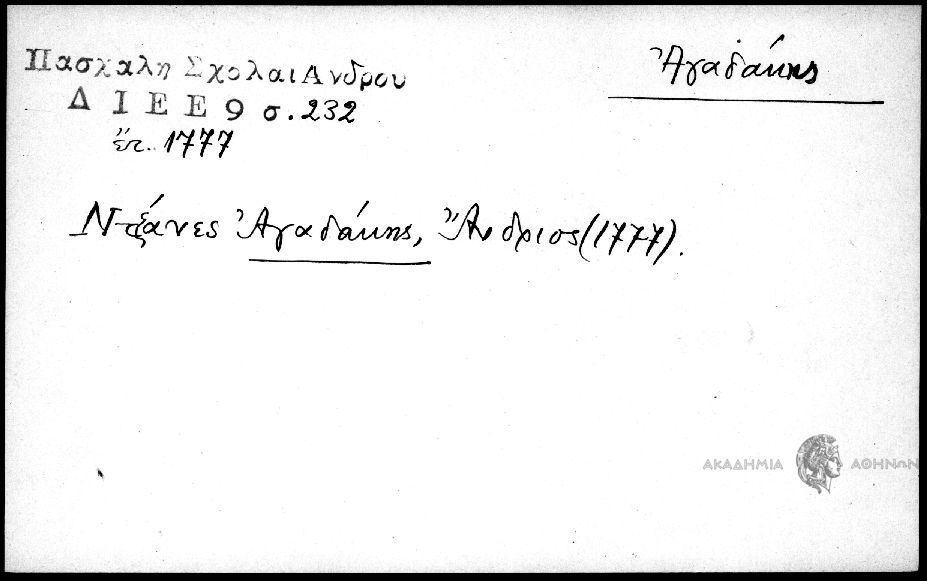 Ἀγαδάκης
Πασχαλη Σχολαι Ανδρου
Δ Ι Ε Ε 9 σ. 232
ἔτ. 1777
Ντζάνες Ἀγαδάκης, Ἄνδριος (1777).
ΑΚΑΔΗΜΙΑ ΑΘΗΝΩΝ